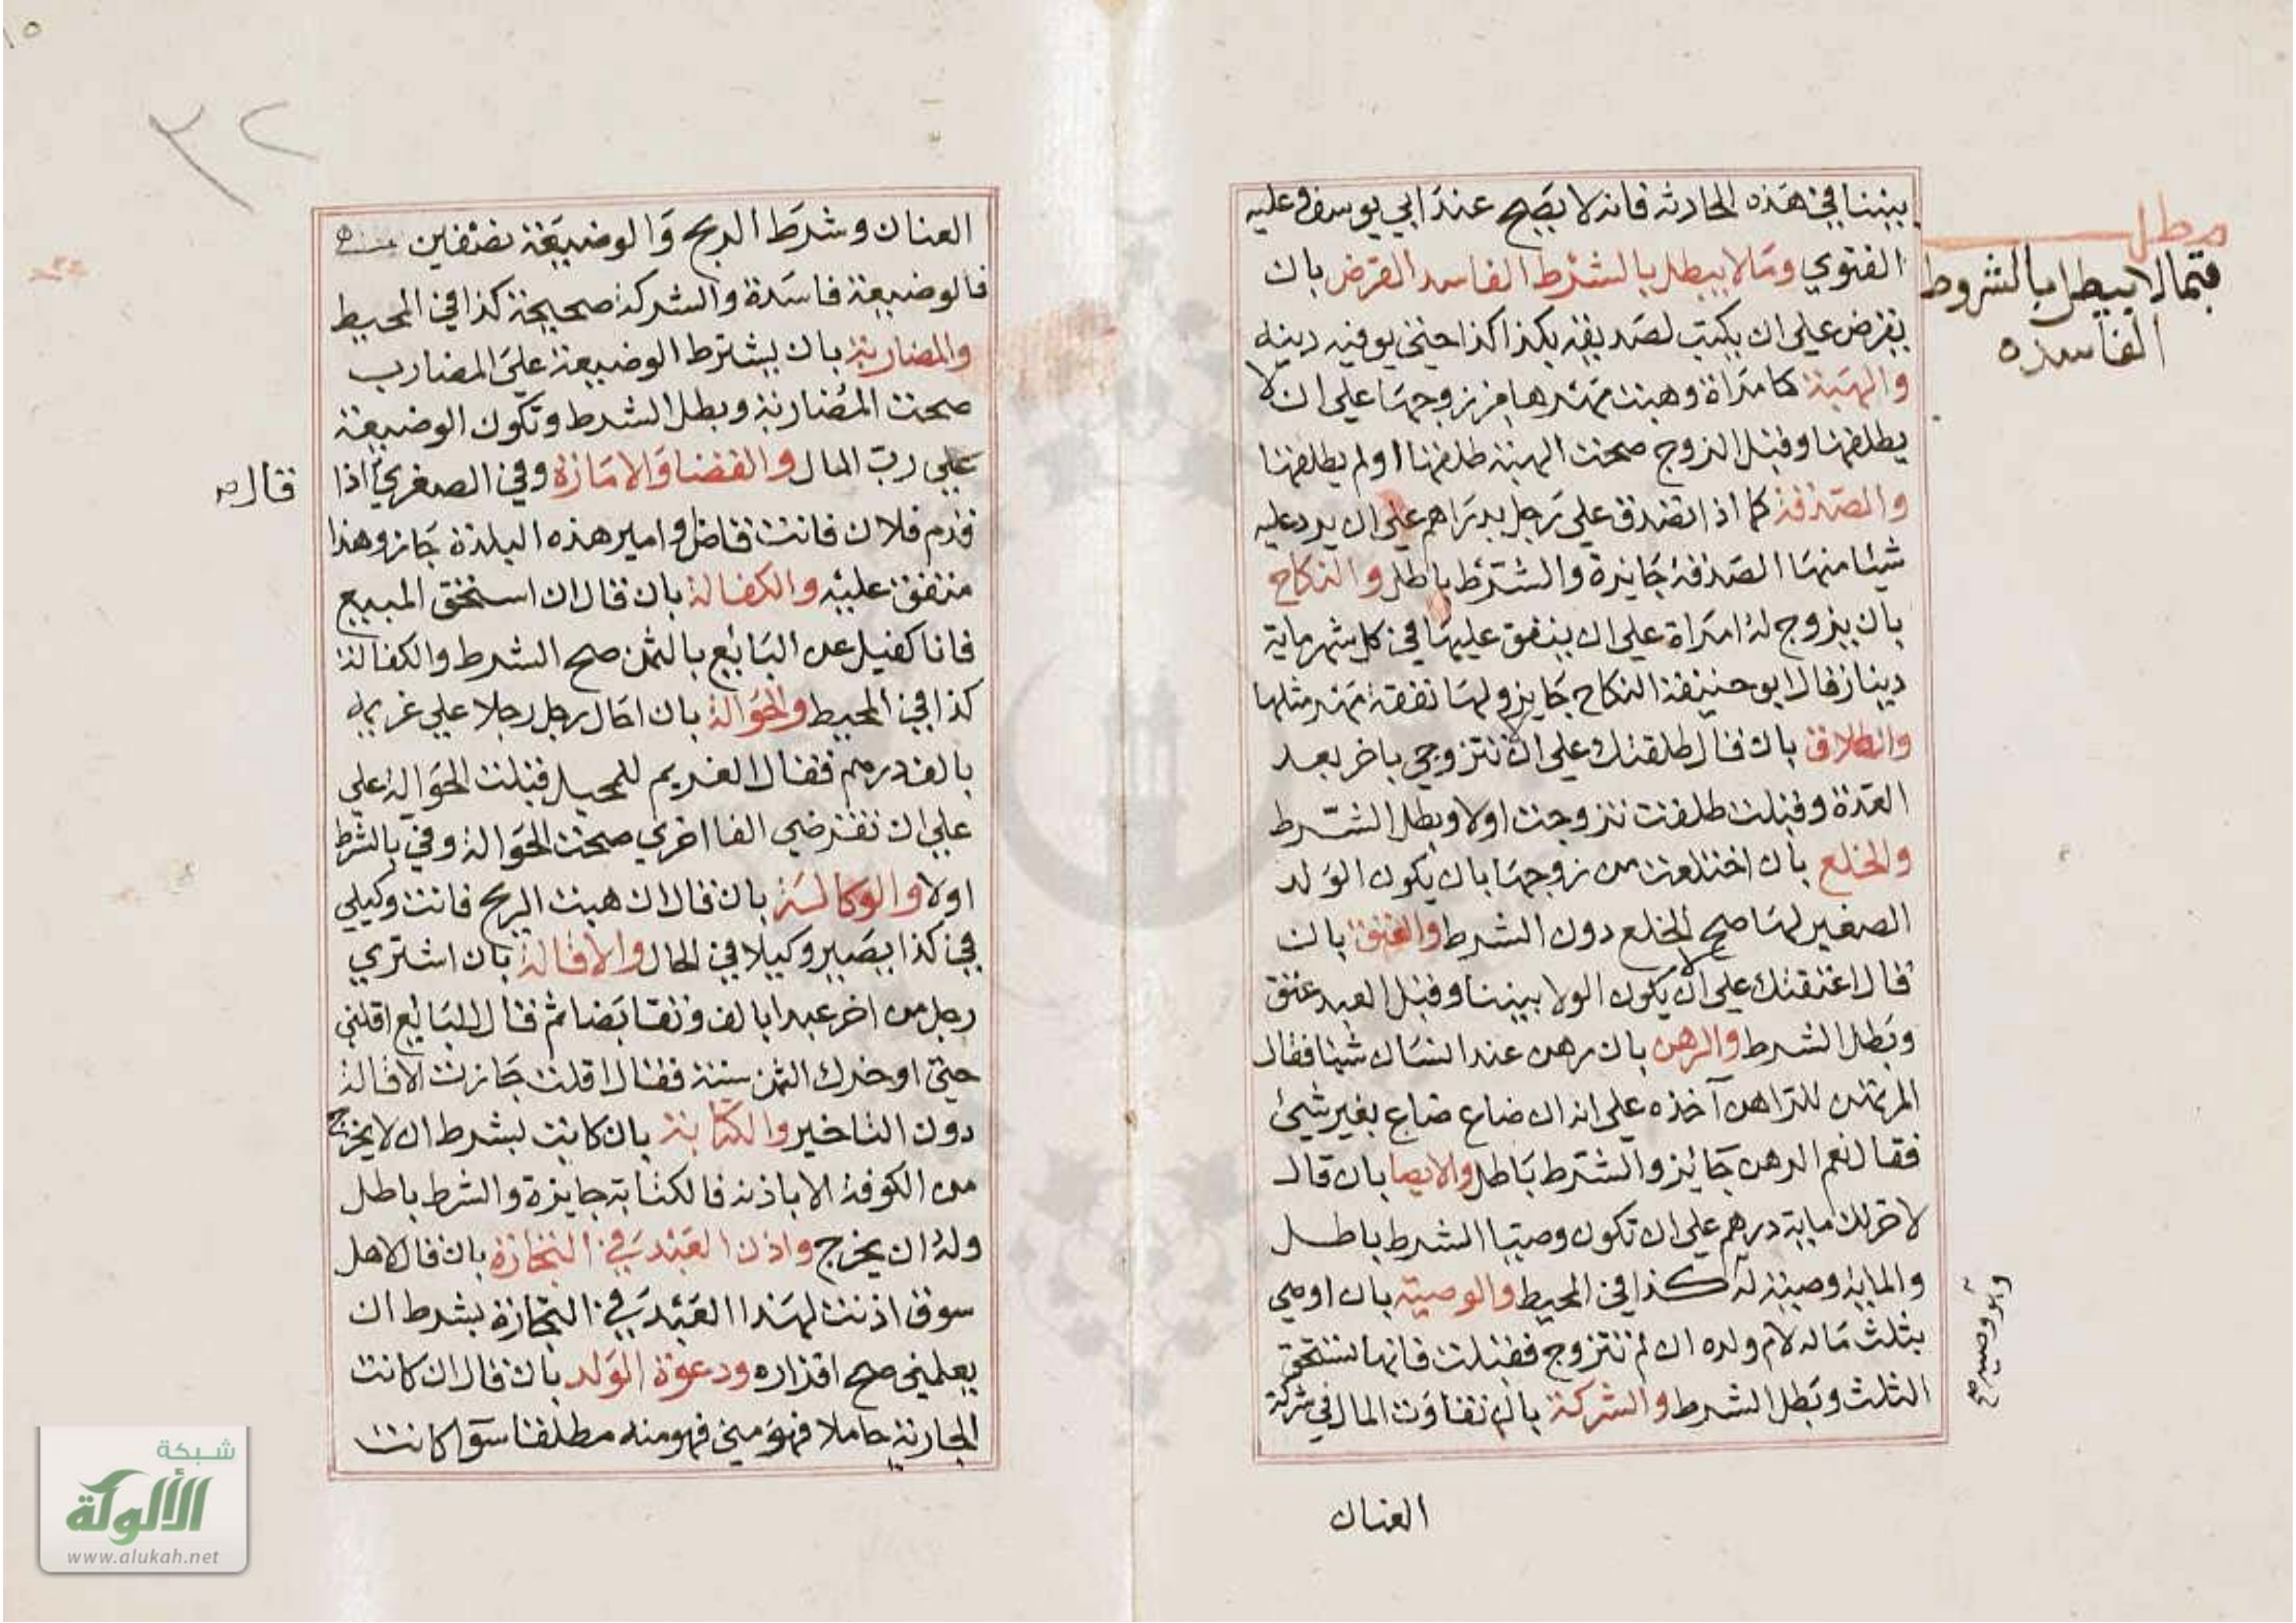 بيننا في هذه الحادثة فانه لا يصح عند ابي يوسف وعليه
الفتوي وما لا يبطل بالشرط الفاسد القرض بان
يقرض علي ان يكتب لصديقه بكذا كذا حتي يوفيه دينه
والهبة كامراة وهبت مهرها من زوجها علي ان لا
يطلقها وقبل الزوج صحت الهبة طلقها او لم يطلقها
والصدقة كما اذا تصدق علي رجل بدراهم علي ان يرد عليه
شيئا منها الصدقة جايزة والشرط باطل والنكاح
بان يزوج له امراة علي ان ينفق عليها في كل شهر ماية
دينار قال ابو حنيفة النكاح جايز ولها نفقة مهر مثلها
والطلاق بان قال طلقتك علي ان لا تتزوجي باخر بعد
العدة وقبلت طلقت تزوجت اولا وبطل الشرط
والخلع بان اختلعت من زوجها بان يكون الولد
الصغير لها صح الخلع دون الشرط والعتق بان
قال اعتقتك علي ان لا يكون الولا بيننا وقبل العبد عتق
وبطل الشرط والرهن بان رهن عند انسان شيئا فقال
المرتهن للراهن آخذه علي انه ان ضاع ضاع بغير شيئ
فقال نعم الرهن جائز والشرط باطل والايصا بان قال
لاخر لك ماية درهم علي ان تكون وصيتا الشرط باطل
والماية وصية له كذا في المحيط والوصية بان اوصي
بثلث ماله لام ولده ان لم تتزوج فقبلت فانها تستحق
الثلث وبطل الشرط والشركة بان تفاوت المال في شركة
العنان
مطل
فيما لا يبطل بالشروط
الفاسده
العنان وشرط الربح والوضيعة نصفين
فالوضيعة فاسدة والشركة صحيحة كذا في المحيط
والمضاربة بان يشترط الوضيعة علي المضارب
صحت المضاربة وبطل الشرط وتكون الوضيعة
علي رب المال والقضا والامارة وفي الصغري اذا
قال
قدم فلان فانت قاض او امير هذه البلدة جاز وهذا
متفق عليه والكفالة بان قال ان استحق المبيع
فانا كفيل عن البائع بالثمن صح الشرط والكفالة
كذا في المحيط والحوالة بان احال رجل رجلا علي غريمه
بالف درهم فقال الغريم للمحيل قبلت الحوالة علي
علي ان تقرضي الفا اخري صحت الحوالة وفي بالشرط
اولا والوكالة بان قال ان هبت الريح فانت وكيلي
في كذا يصير وكيلا في الحال والاقالة بان اشتري
رجل من اخر عبدا بالف وتقابضا ثم قال للبائع اقلني
حتي اوخرك الثمن سنة فقال اقلت جازت الاقالة
دون التاخير والكتابة بان كاتبت بشرط ان لا يخرج
من الكوفة الا باذنه فالكتابة جايزة والشرط باطل
وله ان يخرج واذن العبد في التجارة بان قال لاهل
سوق اذنت لهذا العبد في التجارة بشرط ان
يعلمني صح اقراره ودعوة الولد بان قال ان كانت
الجارية حاملا فهو مني فهو منه مطلقا سوا كانت
٣٢
١٥
شبكة
الألوكة
www.alukah.net